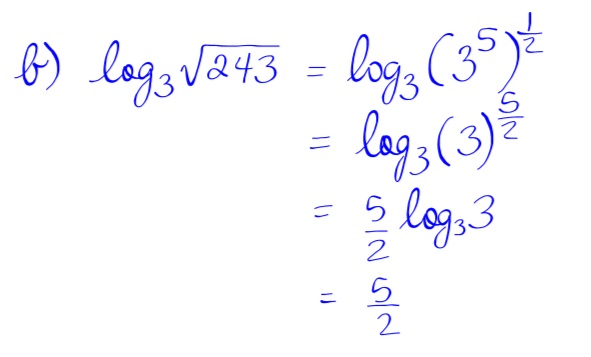 b) log₃√243 = log₃(3⁵)^(1/2)
= log₃(3)^(5/2)
= 5/2 log₃3
= 5/2